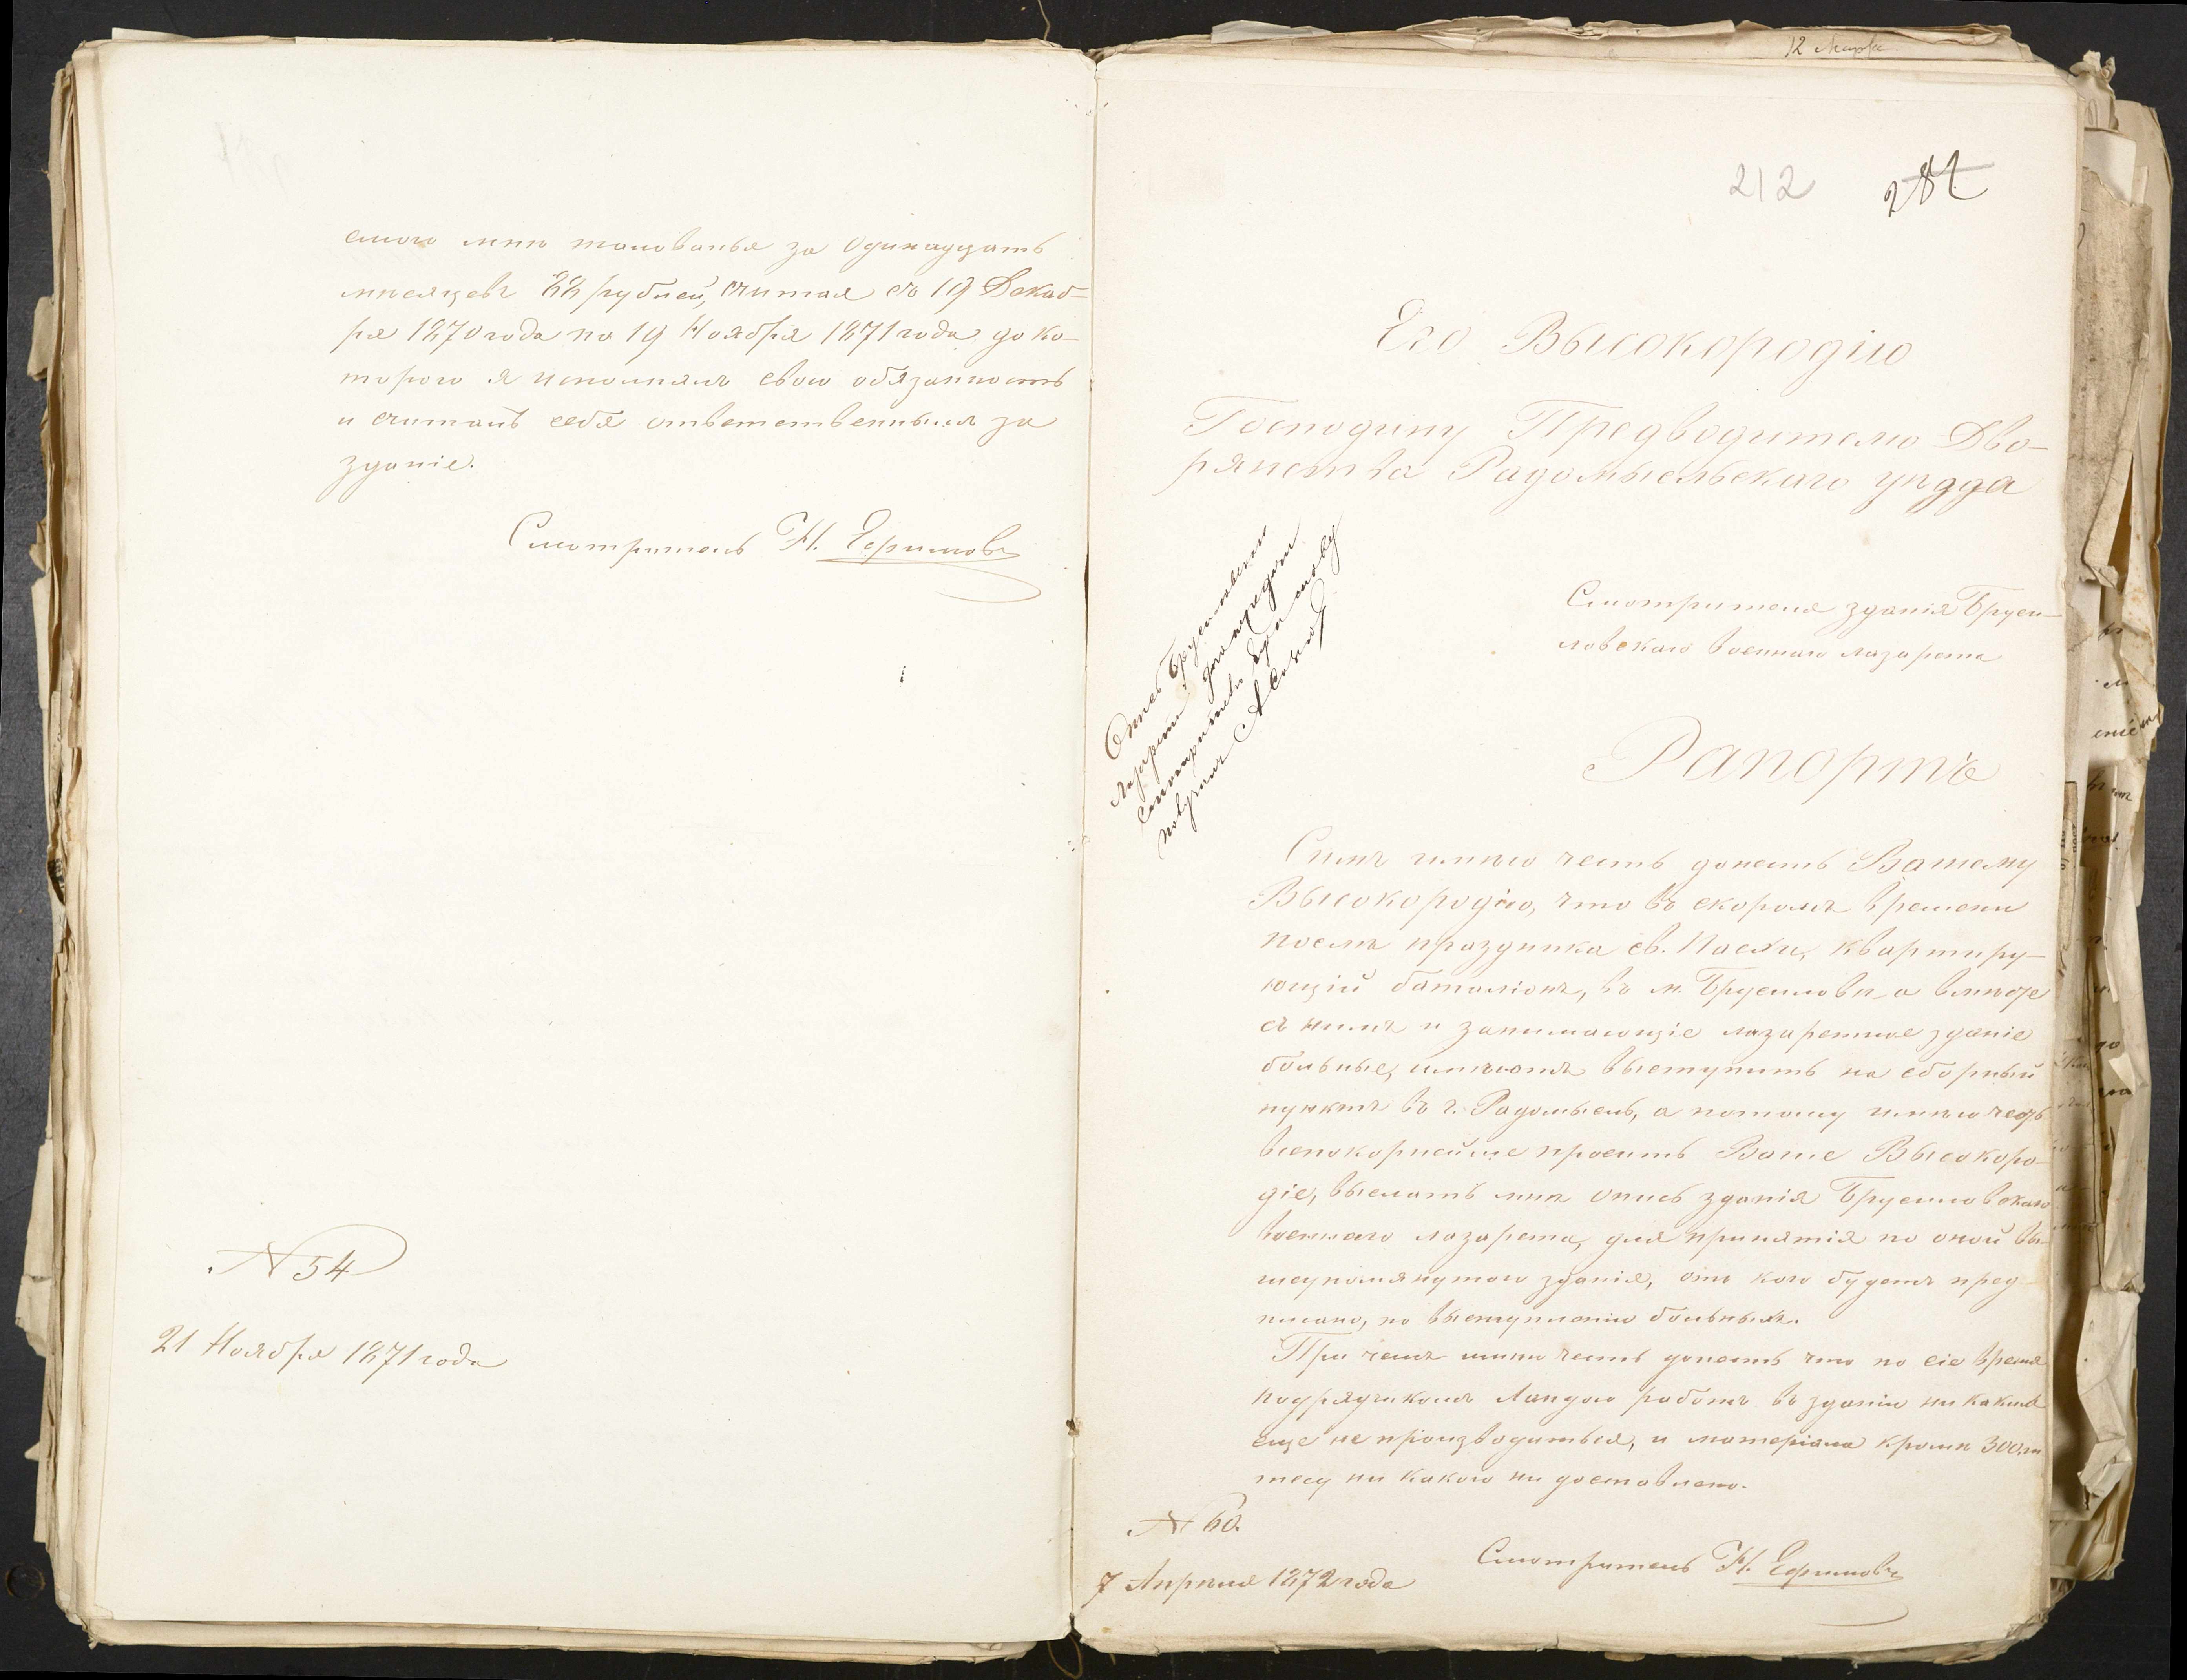 емого мнѣ жалованья за одинадцать
мѣсяцевъ 22 рублей, считая съ 19 Декаб-
ря 1870 года по 19 Ноября 1871 года до ко-
тораго я исполнялъ свою обязанность
и считаю себя ответственнымъ за
зданіе.
Смотритель Н. Ефимовъ
N 54
21 Ноября 1871 года
12 Марта
212 282
Его Высокородію
Господину Предводителю Дво-
рянства Радомысльскаго уѣзда
Смотрителя зданія Бруси-
ловскаго военнаго лазарета
Рапортъ
Опись Брусиловскаго
лазарета для передачи
смотрителю
получилъ
Симъ имѣю честь донесть Вашему
Высокородію, что въ скоромъ времени
послѣ праздника св. Пасхи, квартиру-
ющій баталіонъ, въ м. Брусиловѣ а вмѣстѣ
съ нимъ и занимающіе лазаретное зданіе
больные, имѣютъ выступить на сборный
пунктъ въ г. Радомысль, а потому имѣю честь
всепокорнейше просить Ваше Высокоро-
діе, выслать мнѣ опись зданія Брусиловскаго
военнаго лазарета, для принятія по оной вы-
шеупомянутого зданія, отъ кого будетъ пред-
писано, по выступленіи больныхъ.
При чемъ имѣю честь донесть что по сіе время
подрядчикомъ Ландою работъ въ зданіи ни какихъ
еще не производиться, и матеріала кромѣ 300 ш
тесу ни какого ни доставлено.
N 60.
7 Апрѣля 1872 года
Смотритель Н. Ефимовъ